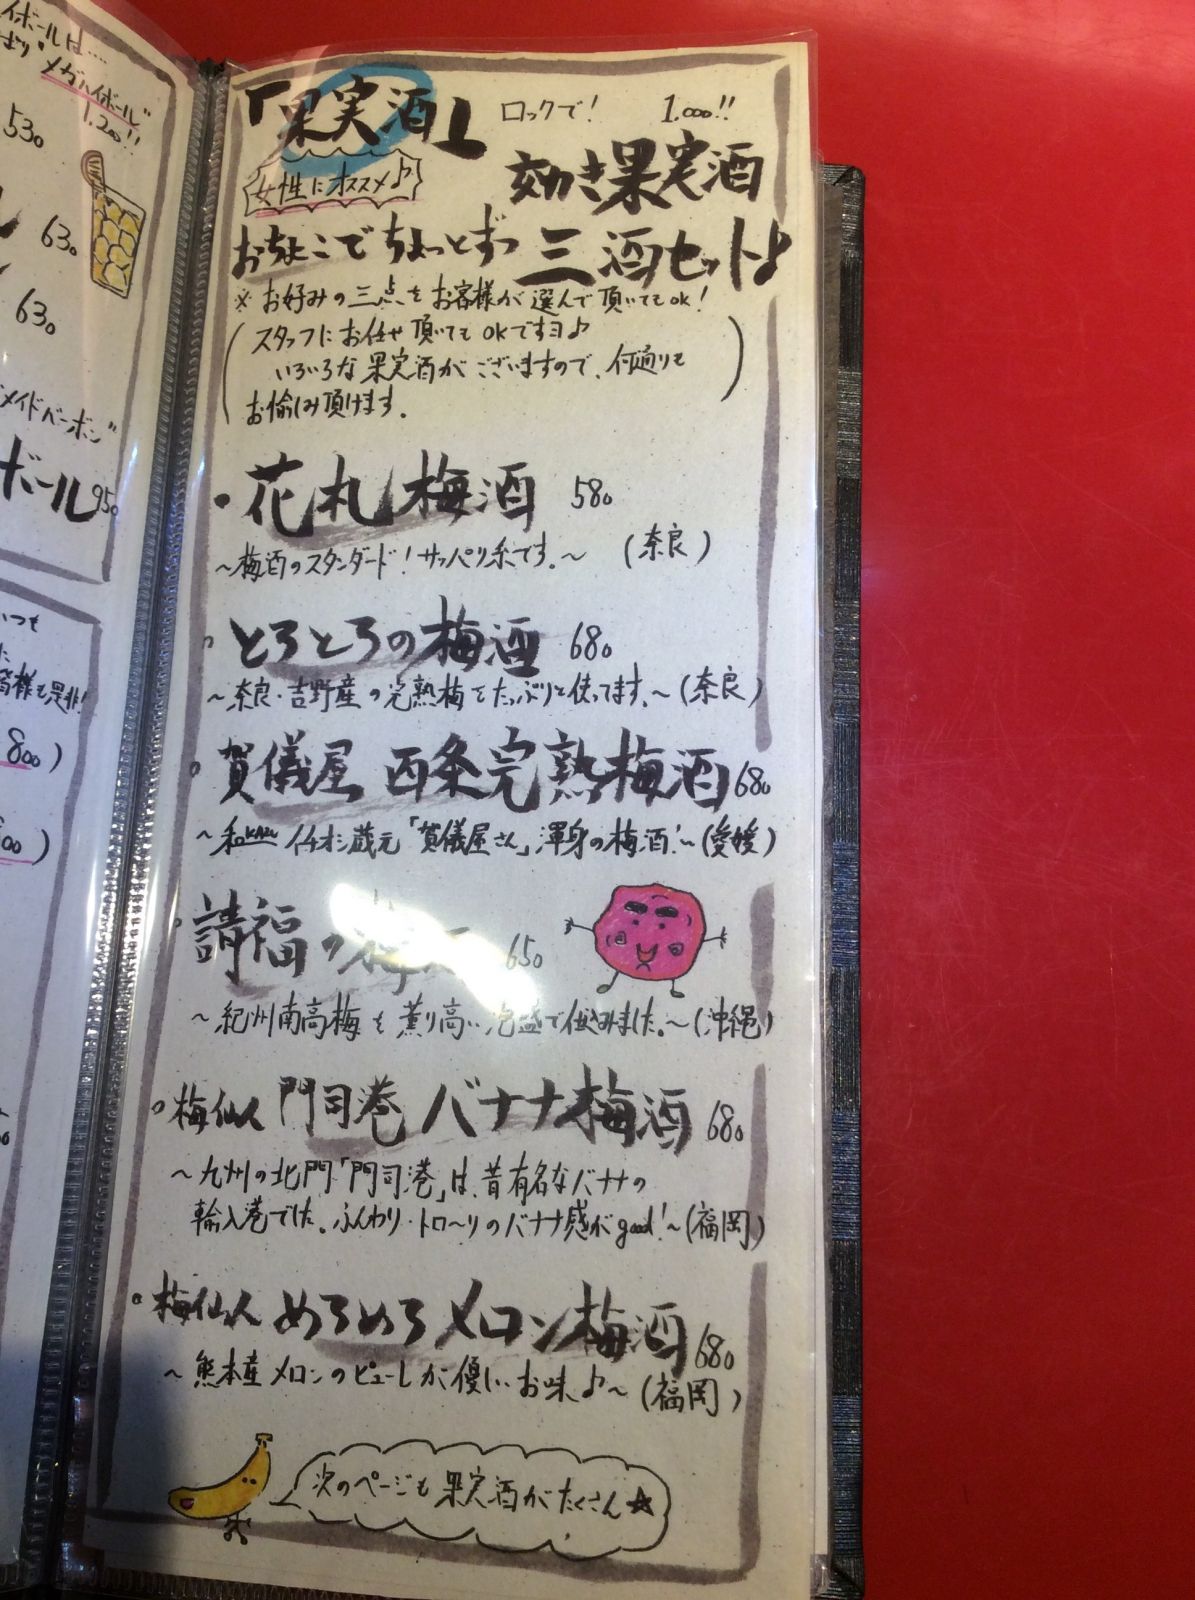 イボールは....
"メガハイボール"
1,200!!
530
630
630
メイドバーボン"
ボール 950
いつも
皆様も是非!
800)
00)
「果実酒」
女性にオススメ♪
ロックで! 1,000!!
効き果実酒
おちょこでちょっとずつ 三酒セット♪
※お好みの三点をお客様が選んで頂いてもok!
(スタッフにお任せ頂いてもOKですヨ♪
いろいろな果実酒がございますので、何通りも
お愉しみ頂けます。)
・花札梅酒 580
〜梅酒のスタンダード!サッパリ系です。〜 (奈良)
。とろとろの梅酒 680
〜奈良・吉野産の完熟梅をたっぷりと使ってます。〜(奈良)
。賀儀屋 西条完熟梅酒 680
〜和KAZU イチオシ蔵元「賀儀屋さん」渾身の梅酒!〜(愛媛)
。請福の梅酒 650
〜紀州南高梅を薫り高い泡盛で仕込みました。〜(沖縄)
。梅仙人 門司港 バナナ梅酒 680
〜九州の北門「門司港」は、昔有名なバナナの
輸入港でした。ふんわり・トロ〜リのバナナ感がgood!〜(福岡)
。梅仙人 めろめろメロン梅酒 680
〜熊本産メロンのピューレが、優しいお味♪〜(福岡)
次のページも果実酒がたくさん☆